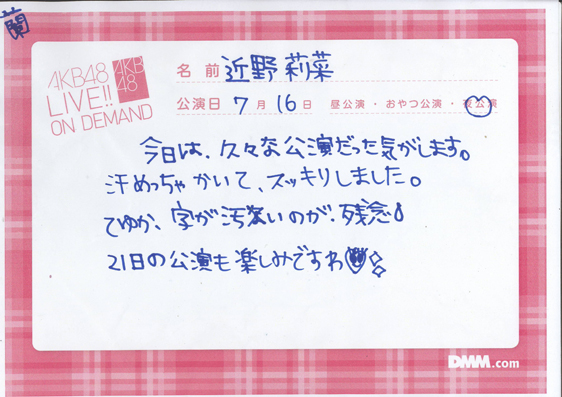 蘭
AKB48
LIVE!!
ON DEMAND
AKB
48
名 前 近野莉菜
公演日 7月16日 昼公演・おやつ公演・夜公演
今日は、久々な公演だった気がします。
汗めっちゃかいて、スッキリしました。
てゆか、字が汚いのが残念!
21日の公演も楽しみですわ
DMM.com